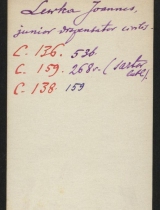 Lewka Joannes,
junior dispensator
C. 136. 536.
C. 159. 268v. (sartor
C. 138. 159